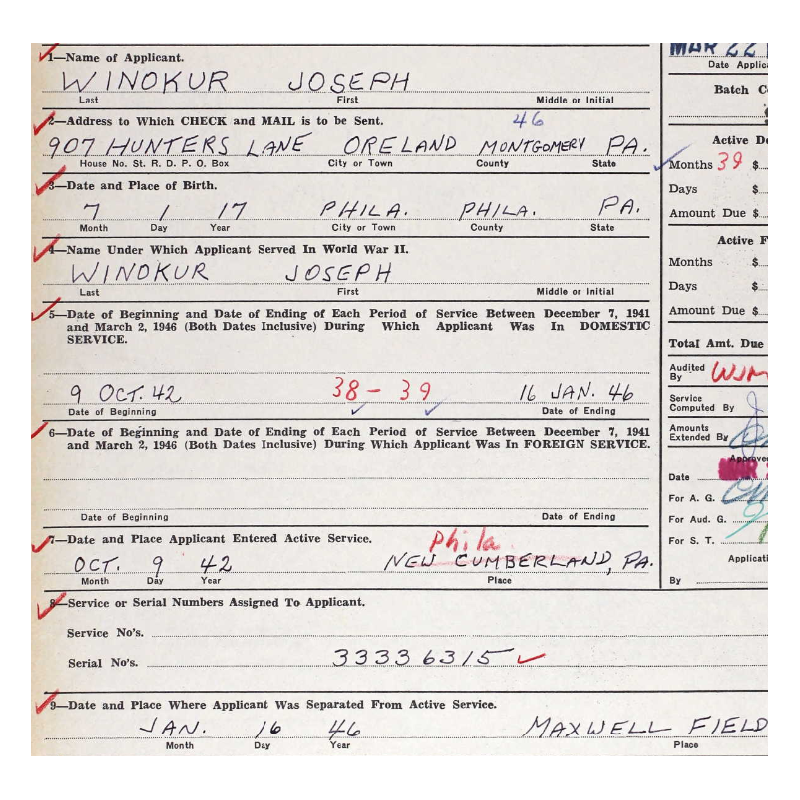 1—Name of Applicant.
WINOKUR JOSEPH
Last First Middle or Initial
2—Address to Which CHECK and MAIL is to be Sent.
46
907 HUNTERS LANE ORELAND MONTGOMERY PA.
House No. St. R. D. P. O. Box City or Town County State
3—Date and Place of Birth.
7 1 17 PHILA. PHILA. PA.
Month Day Year City or Town County State
4—Name Under Which Applicant Served In World War II.
WINOKUR JOSEPH
Last First Middle or Initial
5—Date of Beginning and Date of Ending of Each Period of Service Between December 7, 1941
and March 2, 1946 (Both Dates Inclusive) During Which Applicant Was In DOMESTIC
SERVICE.
9 OCT. 42 38 – 39 16 JAN. 46
Date of Beginning Date of Ending
6—Date of Beginning and Date of Ending of Each Period of Service Between December 7, 1941
and March 2, 1946 (Both Dates Inclusive) During Which Applicant Was In FOREIGN SERVICE.
Date of Beginning Date of Ending
7—Date and Place Applicant Entered Active Service.
Phila
OCT. 9 42 NEW CUMBERLAND, PA.
Month Day Year Place
8—Service or Serial Numbers Assigned To Applicant.
Service No's.
Serial No's. 33336315
9—Date and Place Where Applicant Was Separated From Active Service.
JAN. 16 46 MAXWELL FIELD
Month Day Year Place
MAR 22
Date Applic
Batch C
Active D
Months 39 $
Days $
Amount Due $
Active F
Months $
Days $
Amount Due $
Total Amt. Due
Audited
By WJM
Service
Computed By
Amounts
Extended By
Approve
Date MAR
For A. G.
For Aud. G.
For S. T.
Applicati
By